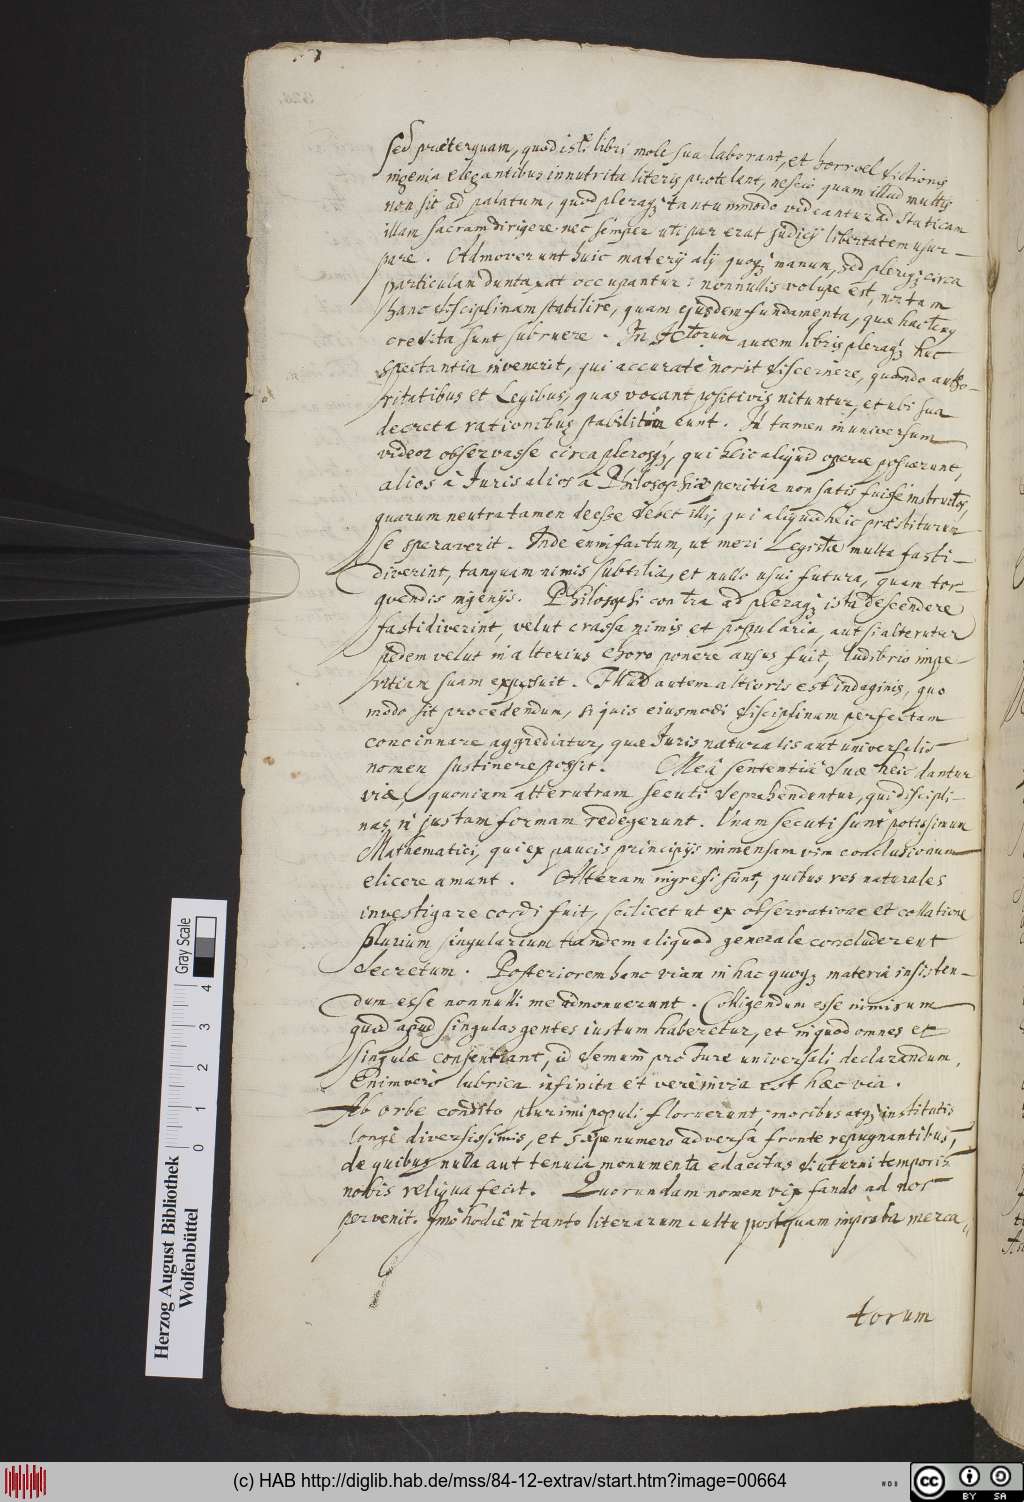 Sed præterquam, quod isti libri mole sua laborant, et horrore dictionis
ingenia elegantibus innutrita literis protelant, nescio quam illud multis
non sit ad palatum, quod pleraq; tantummodo videantur ad staticam
illam sacram dirigere nec semper uti par erat judicij libertatem usur-
pare. Admoverunt huic materij alij quoq; manum, sed pleriq; circa
particulam duntaxat occupantur: nonnullis volupe est, non tam
hanc disciplinam stabilire, quam ejusdem fundamenta, quæ hactenus
credita sunt subruere. In JCtorum autem libris pleraq; huc
spectantia invenerit, qui accuratè norit discernere, quando autho-
ritatibus et Legibus, quas vocant positivis nituntur, et ubi sua
decreta rationibus stabilitum eunt. Id tamen in universum
videor observasse circa plerosq;, qui heic aliquid operæ posuerunt,
alios à Juris alios à Philosophiæ peritia non satis fuisse instructos,
quarum neutra tamen deesse debet illi, qui aliquid heic præstiturum
se speraverit. Inde enim factum, ut meri Legistæ multa fasti-
diverint, tanquam nimis subtilia, et nullo usui futura, quam tor-
quendis ingenijs. Philosophi contra ad pleraq; ista descendere
fastidiverint, velut crassa nimis et popularia, aut si alteruter
pedem velut in alterius choro ponere ausus fuit, ludibrio impe-
ritiam suam exposuit. Illud autem altioris est indaginis, quo
modo sit procedendum, si quis eiusmodi disciplinam perfectam
concinnare aggrediatur, quæ Juris naturalis aut universalis
nomen sustinere possit. Meâ sententiâ duæ heic dantur
viæ, quoniam alterutram secuti deprehenduntur, qui discipli-
nas in justam formam redegerunt. Unam secuti sunt potissimum
Mathematici, qui ex paucis principijs immensam vim conclusionum
elicere amant. Alteram ingressi sunt, quibus res naturales
investigare cordi fuit, scilicet ut ex observatione et collatione
plurium singularium tandem aliquod generale concluderent
decretum. Posteriorem hanc viam in hac quoq; materia insisten-
dum esse nonnulli me admonuerunt. Colligendum esse nimirum
quid apud singulas gentes iustum haberetur, et in quod omnes et
singulæ consentiant, id demum pro Jure universali declarandum.
Enimvero lubrica infinita et vere invia est hæc via.
Ab orbe condito plurimi populi floruerunt, moribus atq; institutis
longè diversissimis, et sæpenumero adversa fronte repugnantibus,
de quibus nulla aut tenuia monumenta edacitas diuturni temporis
nobis reliqua fecit. Quorundam nomen vix fando ad nos
pervenit. Imò hodiè in tanto literarum cultu postquam improba merca-
torum
Herzog August Bibliothek
Wolfenbüttel
0 1 2 3 4
Gray Scale
(c) HAB http://diglib.hab.de/mss/84-12-extrav/start.htm?image=00664
cc BY SA